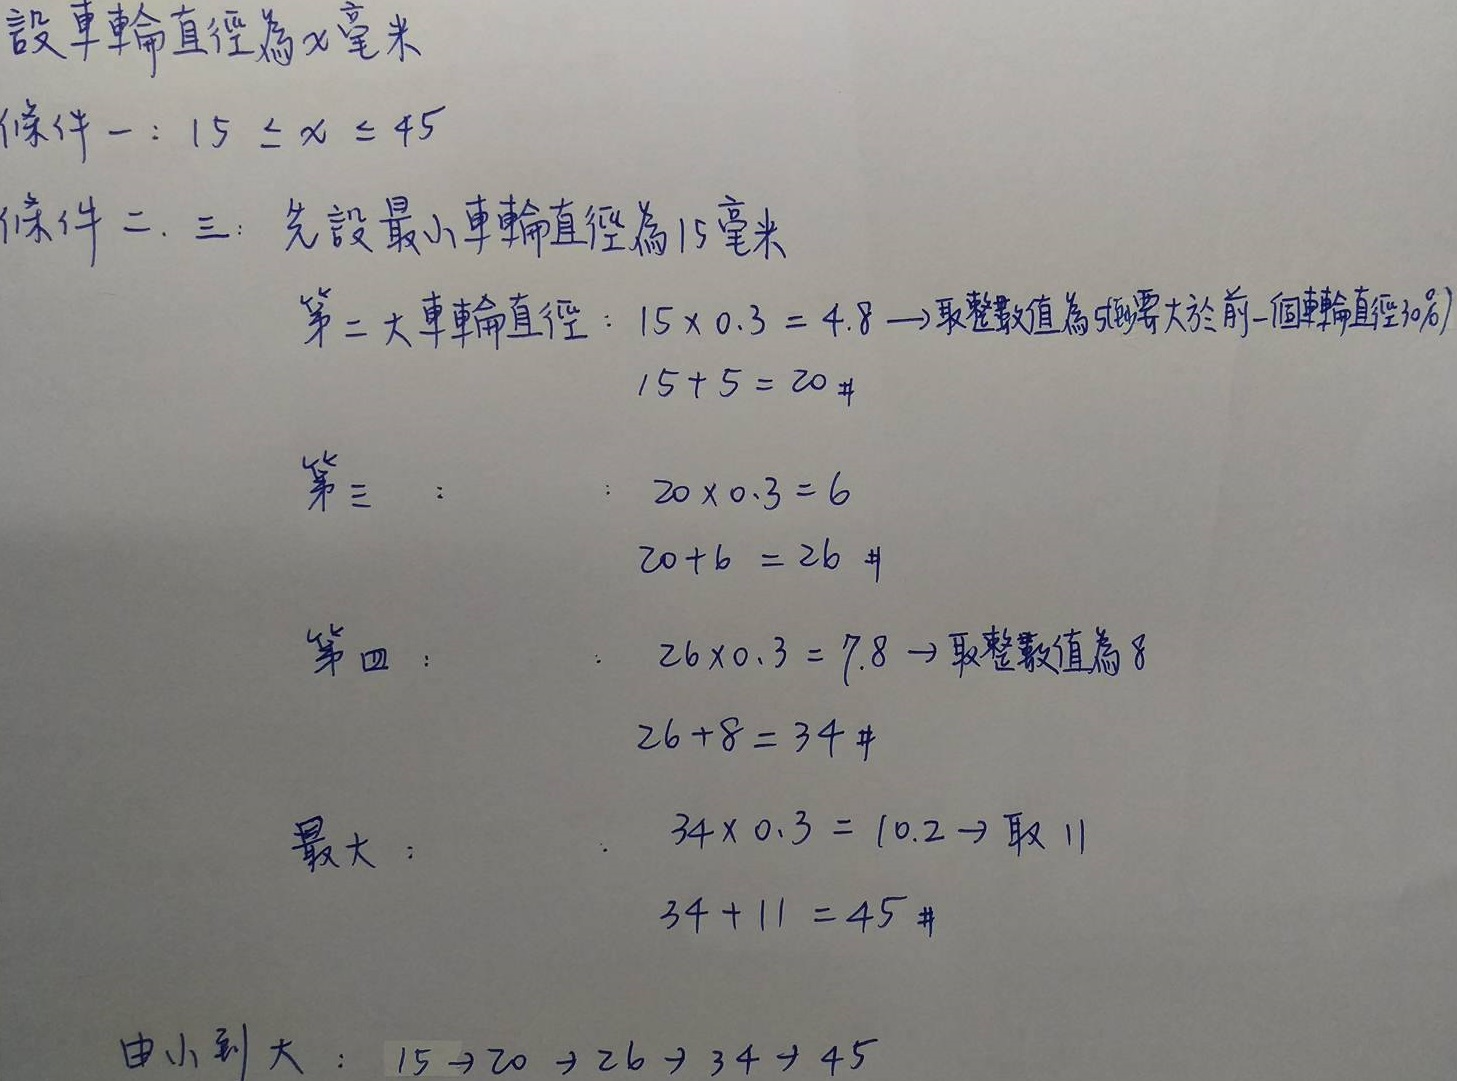 設車輪直徑為x毫米
條件一：15 ≤ x ≤ 45
條件二.三：先設最小車輪直徑為15毫米
第二大車輪直徑：15 × 0.3 = 4.8 → 取整數值為5(至少要大於前一個車輪直徑30%)
15 + 5 = 20 #
第三 ： ： 20 × 0.3 = 6
20 + 6 = 26 #
第四 ： ： 26 × 0.3 = 7.8 → 取整數值為8
26 + 8 = 34 #
最大 ： . 34 × 0.3 = 10.2 → 取 11
34 + 11 = 45 #
由小到大 ： 15 → 20 → 26 → 34 → 45